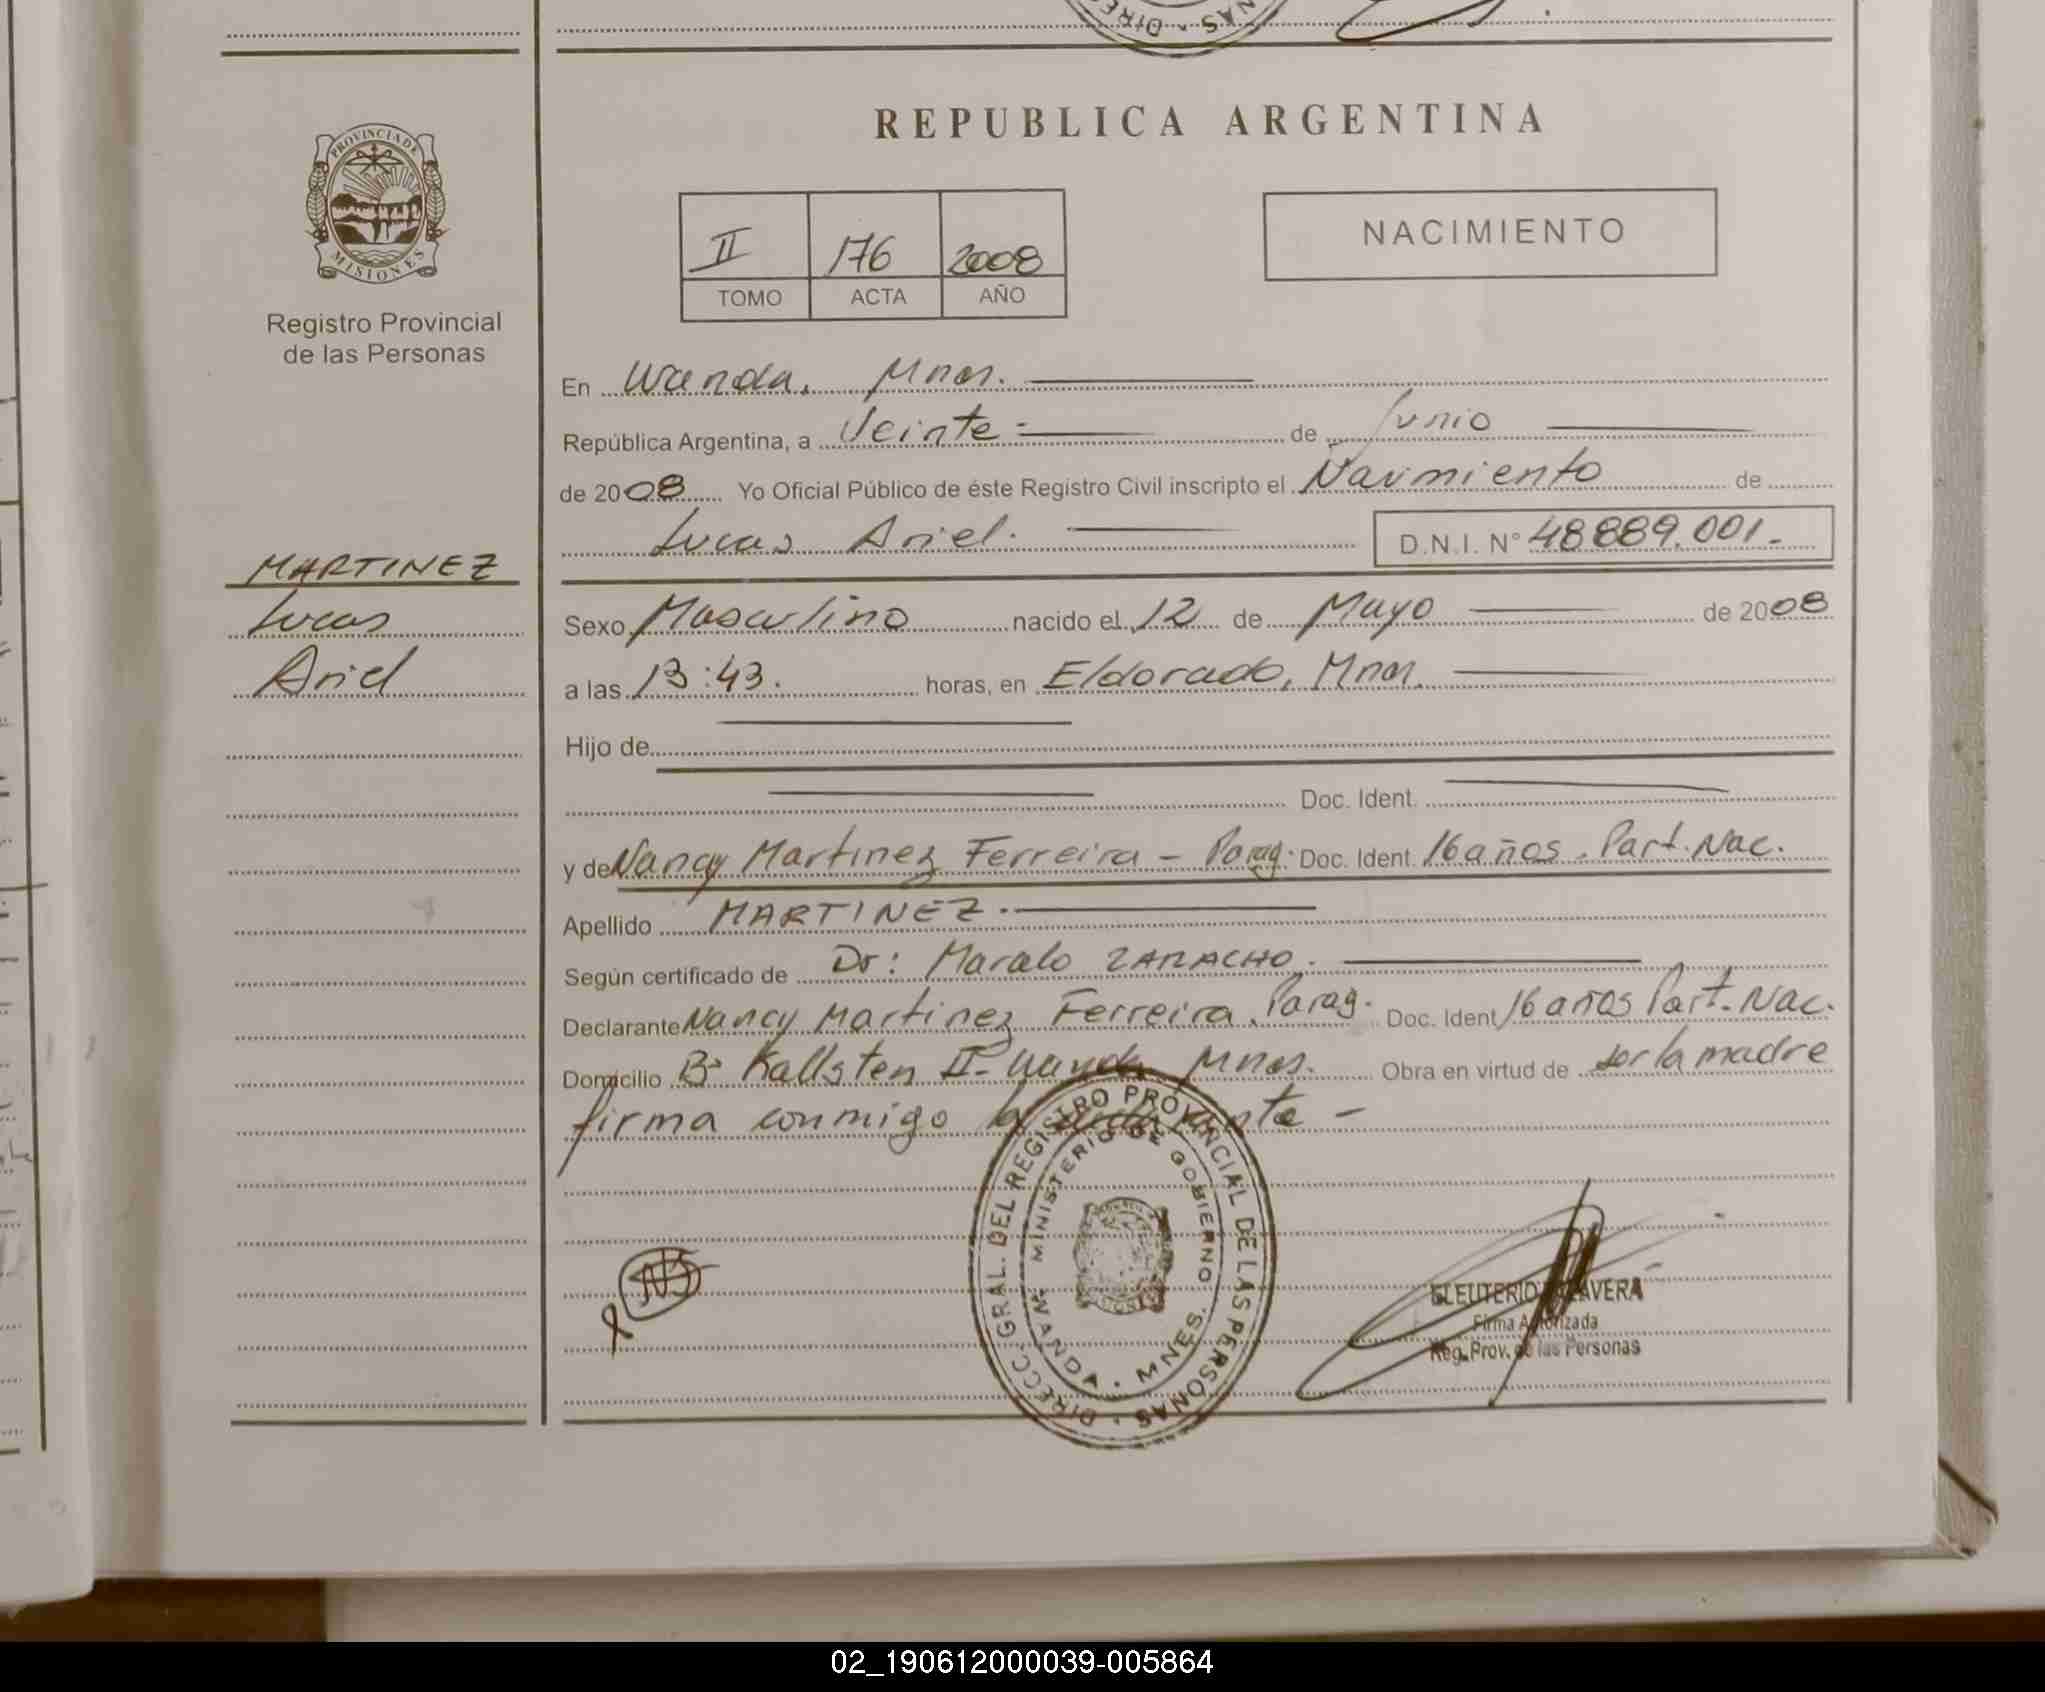 REPUBLICA ARGENTINA
PROVINCIA DE
MISIONES
Registro Provincial
de las Personas
II 176 2008
TOMO ACTA AÑO
NACIMIENTO
En Wanda, Mnes.
República Argentina, a Veinte = de Junio
de 2008 Yo Oficial Público de éste Registro Civil inscripto el Nacimiento de
Lucas Ariel. D.N.I. N° 48889.001.-
MARTINEZ
Lucas
Ariel
Sexo Masculino nacido el 12 de Mayo de 2008
a las 13:43. horas, en Eldorado, Mnes.
Hijo de
Doc. Ident.
y de Nancy Martinez Ferreira - Parag. Doc. Ident. 16 años. Part. Nac.
Apellido MARTINEZ.
Según certificado de Dr: Marcelo ZARACHO.
Declarante Nancy Martinez Ferreira. Parag. Doc. Ident 16 años Part. Nac.
Domicilio B° Kallsten II - Wanda Mnes. Obra en virtud de ser la madre
firma conmigo la -
DIRECC. GRAL. DEL REGISTRO PROVINCIAL DE LAS PERSONAS
MINISTERIO DE GOBIERNO
WANDA. MNES.
Firma Autorizada
Reg. Prov. de las Personas
02_190612000039-005864